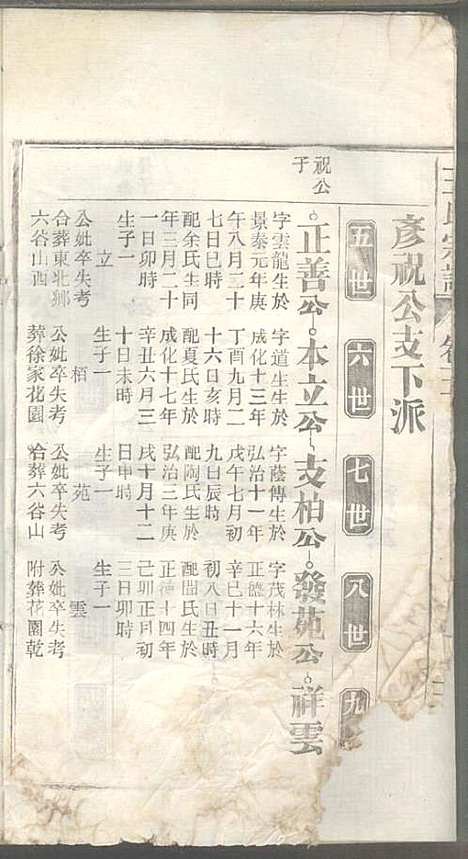 彥祝公支下派
五世 六世 七世 八世 九
祝公
子
正善公 本立公 支柏公 發苑公 祥雲
字雲龍生於
景泰元年庚
午八月二十
七日巳時
配余氏生同
年三月二十
一日卯時
生子一
立
公妣卒失考
合葬東北鄉
六谷山西
字道生生於
成化十三年
丁酉九月二
十六日亥時
配夏氏生於
成化十七年
辛丑六月三
十日未時
生子一
栢
公妣卒失考
葬徐家花園
字蔭傳生於
弘治十一年
戊午七月初
九日辰時
配陶氏生於
弘治三年庚
戌十月十二
日申時
生子一
苑
公妣卒失考
合葬六谷山
字茂林生於
正德十六年
辛巳十一月
初八日丑時
配閻氏生於
正德十四年
己卯正月初
三日卯時
生子一
雲
公妣卒失考
附葬花園乾